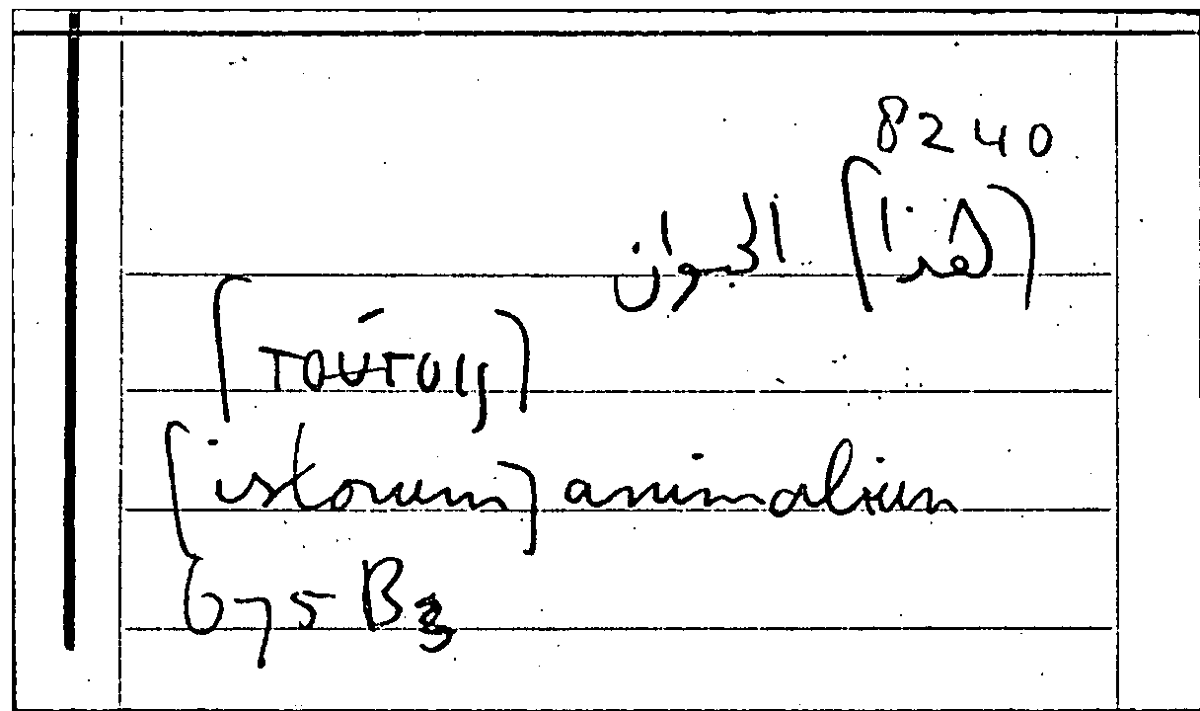 8240
(هذا) الحيوان
(τούτοις)
(istorum) animalium
675 B3